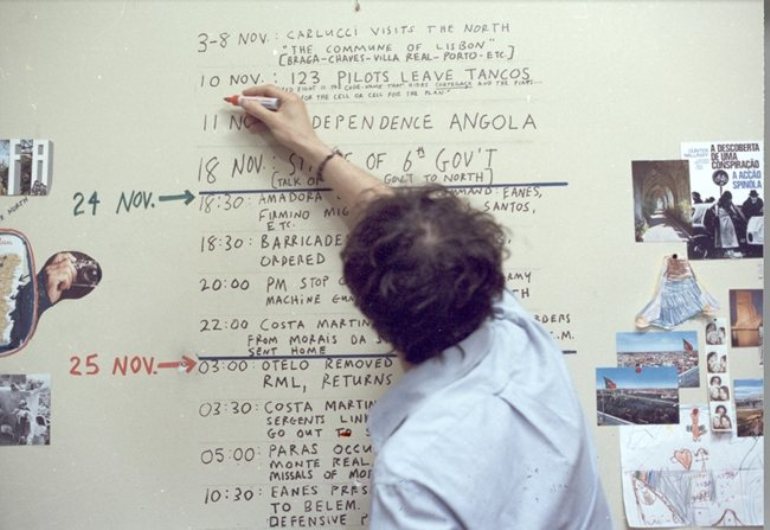 3-8 NOV. : CARLUCCI VISITS THE NORTH
"THE COMMUNE OF LISBON"
[BRAGA-CHAVES-VILLA REAL-PORTO-ETC.]
10 NOV. : 123 PILOTS LEAVE TANCOS
IS THE CODE-NAME THAT HIDES CORTEGAÇA AND THE PLANS
FOR THE CELL OR CELL FOR THE PLAN."
11 NO DEPENDENCE ANGOLA
18 NOV. : ST OF 6th GOV'T
[TALK OF GOV'T TO NORTH]
24 NOV.
18:30 : AMADORA MMAND: EANES,
FIRMINO MIG SANTOS,
ETC.
18:30 : BARRICADE
ORDERED
20:00 PM STOP RMY
MACHINE GUN TH
22:00 COSTA MARTIN RDERS
FROM MORAIS DA S .M.
SENT HOME
25 NOV.
03:00 : OTELO REMOVED
RML, RETURNS
03:30 : COSTA MARTIN
SERGENTS LIN
GO OUT TO S
05:00 : PARAS OCCU
MONTE REAL
MISSALS OF MO
10:30 : EANES PRES
TO BELEM.
DEFENSIVE
NORTH
GÜNTER WALLRAFF
A DESCOBERTA
DE UMA
CONSPIRAÇÃO
A ACÇÃO
SPÍNOLA